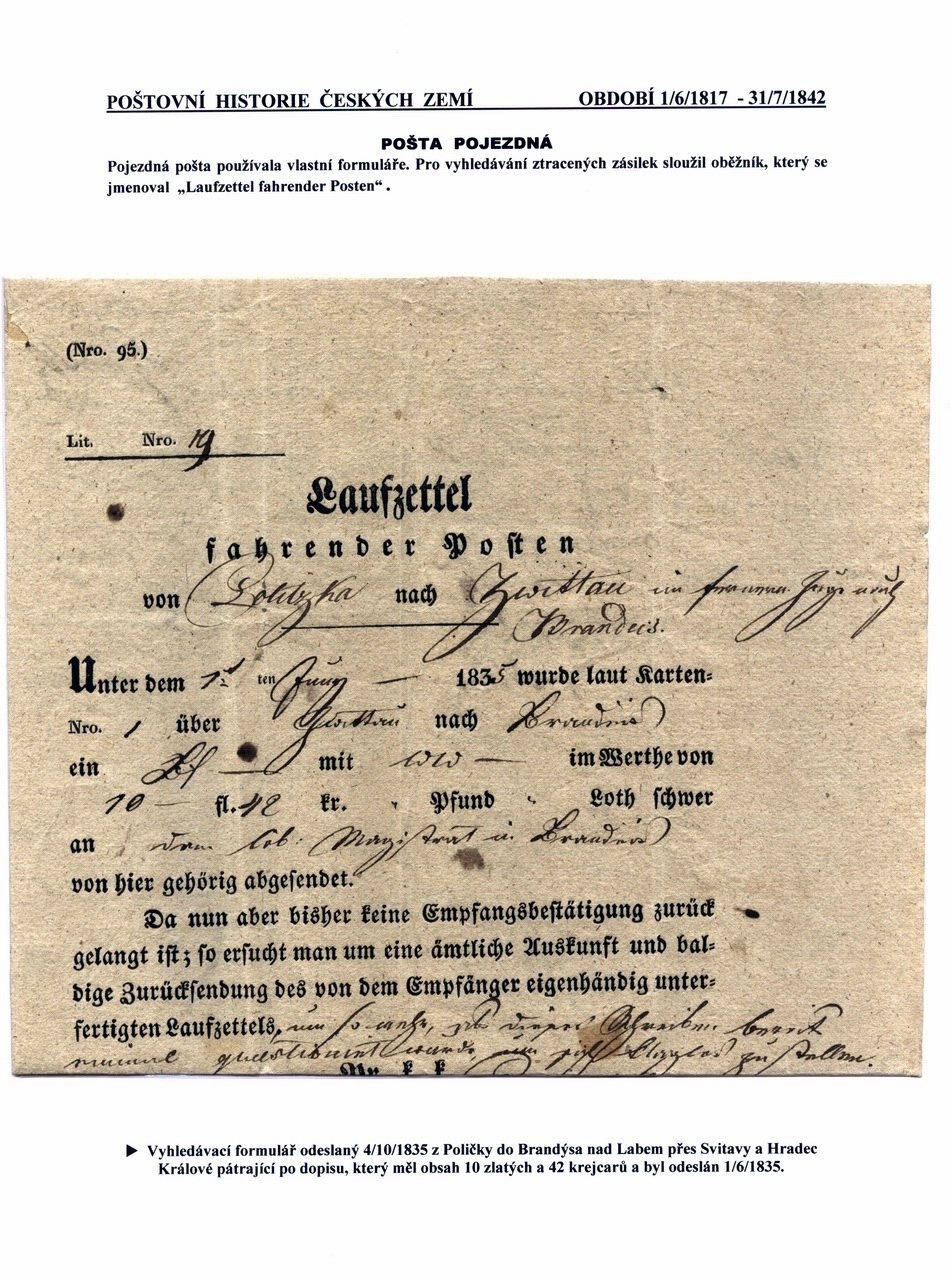 POŠTOVNÍ HISTORIE ČESKÝCH ZEMÍ OBDOBÍ 1/6/1817 - 31/7/1842
POŠTA POJEZDNÁ
Pojezdná pošta používala vlastní formuláře. Pro vyhledávání ztracených zásilek sloužil oběžník, který se
jmenoval „Laufzettel fahrender Posten“ .
(Nro. 95.)
Lit. Nro. 19
Laufzettel
fahrender Posten
von Politzka nach Zwittau im fernern Zuge nach
Brandeis.
Unter dem 1 ten Juny 1835 wurde laut Karten=
Nro. 1 über Zwittau nach Brandeis
ein Bf mit im Werthe von
10 fl. 42 kr. " Pfund " Loth schwer
an dem löb: Magistrat in Brandeis
von hier gehörig abgesendet.
Da nun aber bisher keine Empfangsbestätigung zurück
gelangt ist; so ersucht man um eine ämtliche Auskunft und bal=
dige Zurücksendung des von dem Empfänger eigenhändig unter=
fertigten Laufzettels, um so mehr, als dieses Schreiben bereit
zu stellen.
▶ Vyhledávací formulář odeslaný 4/10/1835 z Poličky do Brandýsa nad Labem přes Svitavy a Hradec
Králové pátrající po dopisu, který měl obsah 10 zlatých a 42 krejcarů a byl odeslán 1/6/1835.